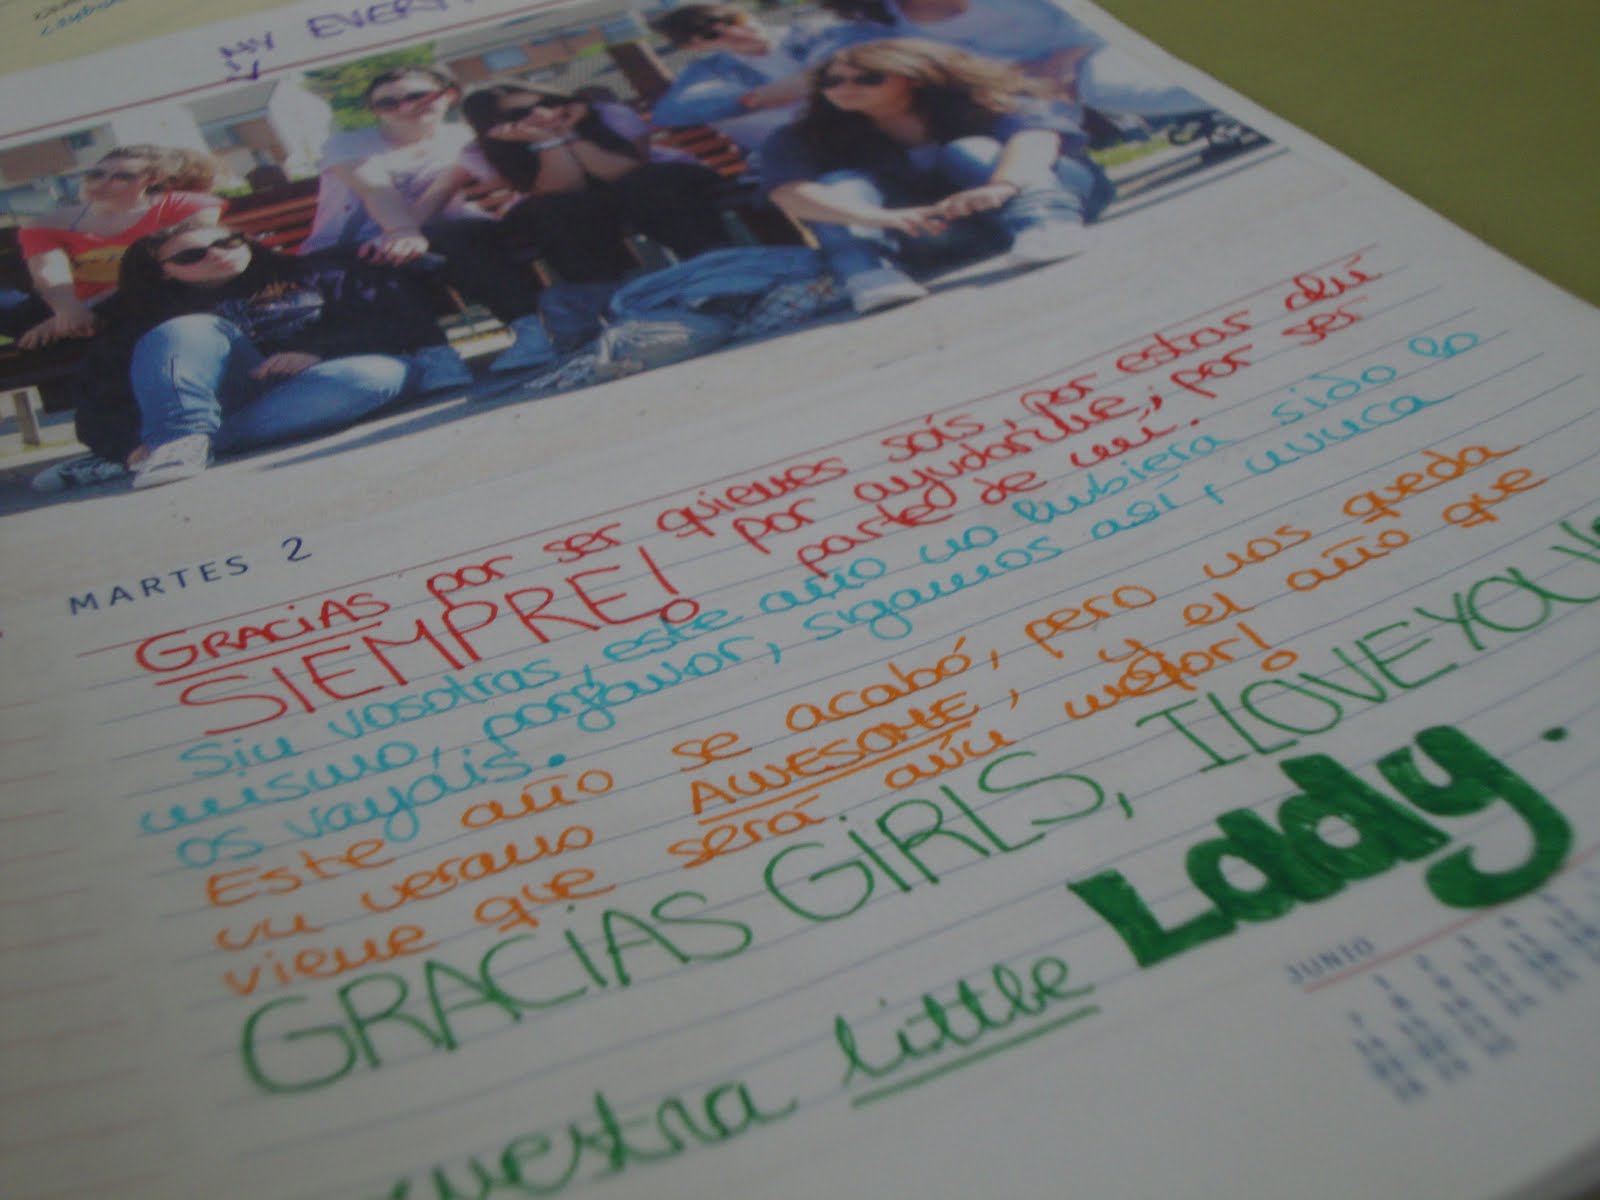 MY EVERY
MARTES 2
GRACIAS por ser quienes sois, por estar ahí
SIEMPRE! por ayudarme, por ser
parte de mí.
Sin vosotras, este año no hubiera sido lo
mismo, porfavor, sigamos así, nunca
os vayáis.
Este año se acabó, pero nos queda
un verano AWESOME, y el año que
viene que será aún mejor!
GRACIAS GIRLS, I LOVE YOU
vuestra little Laddy.
JUNIO